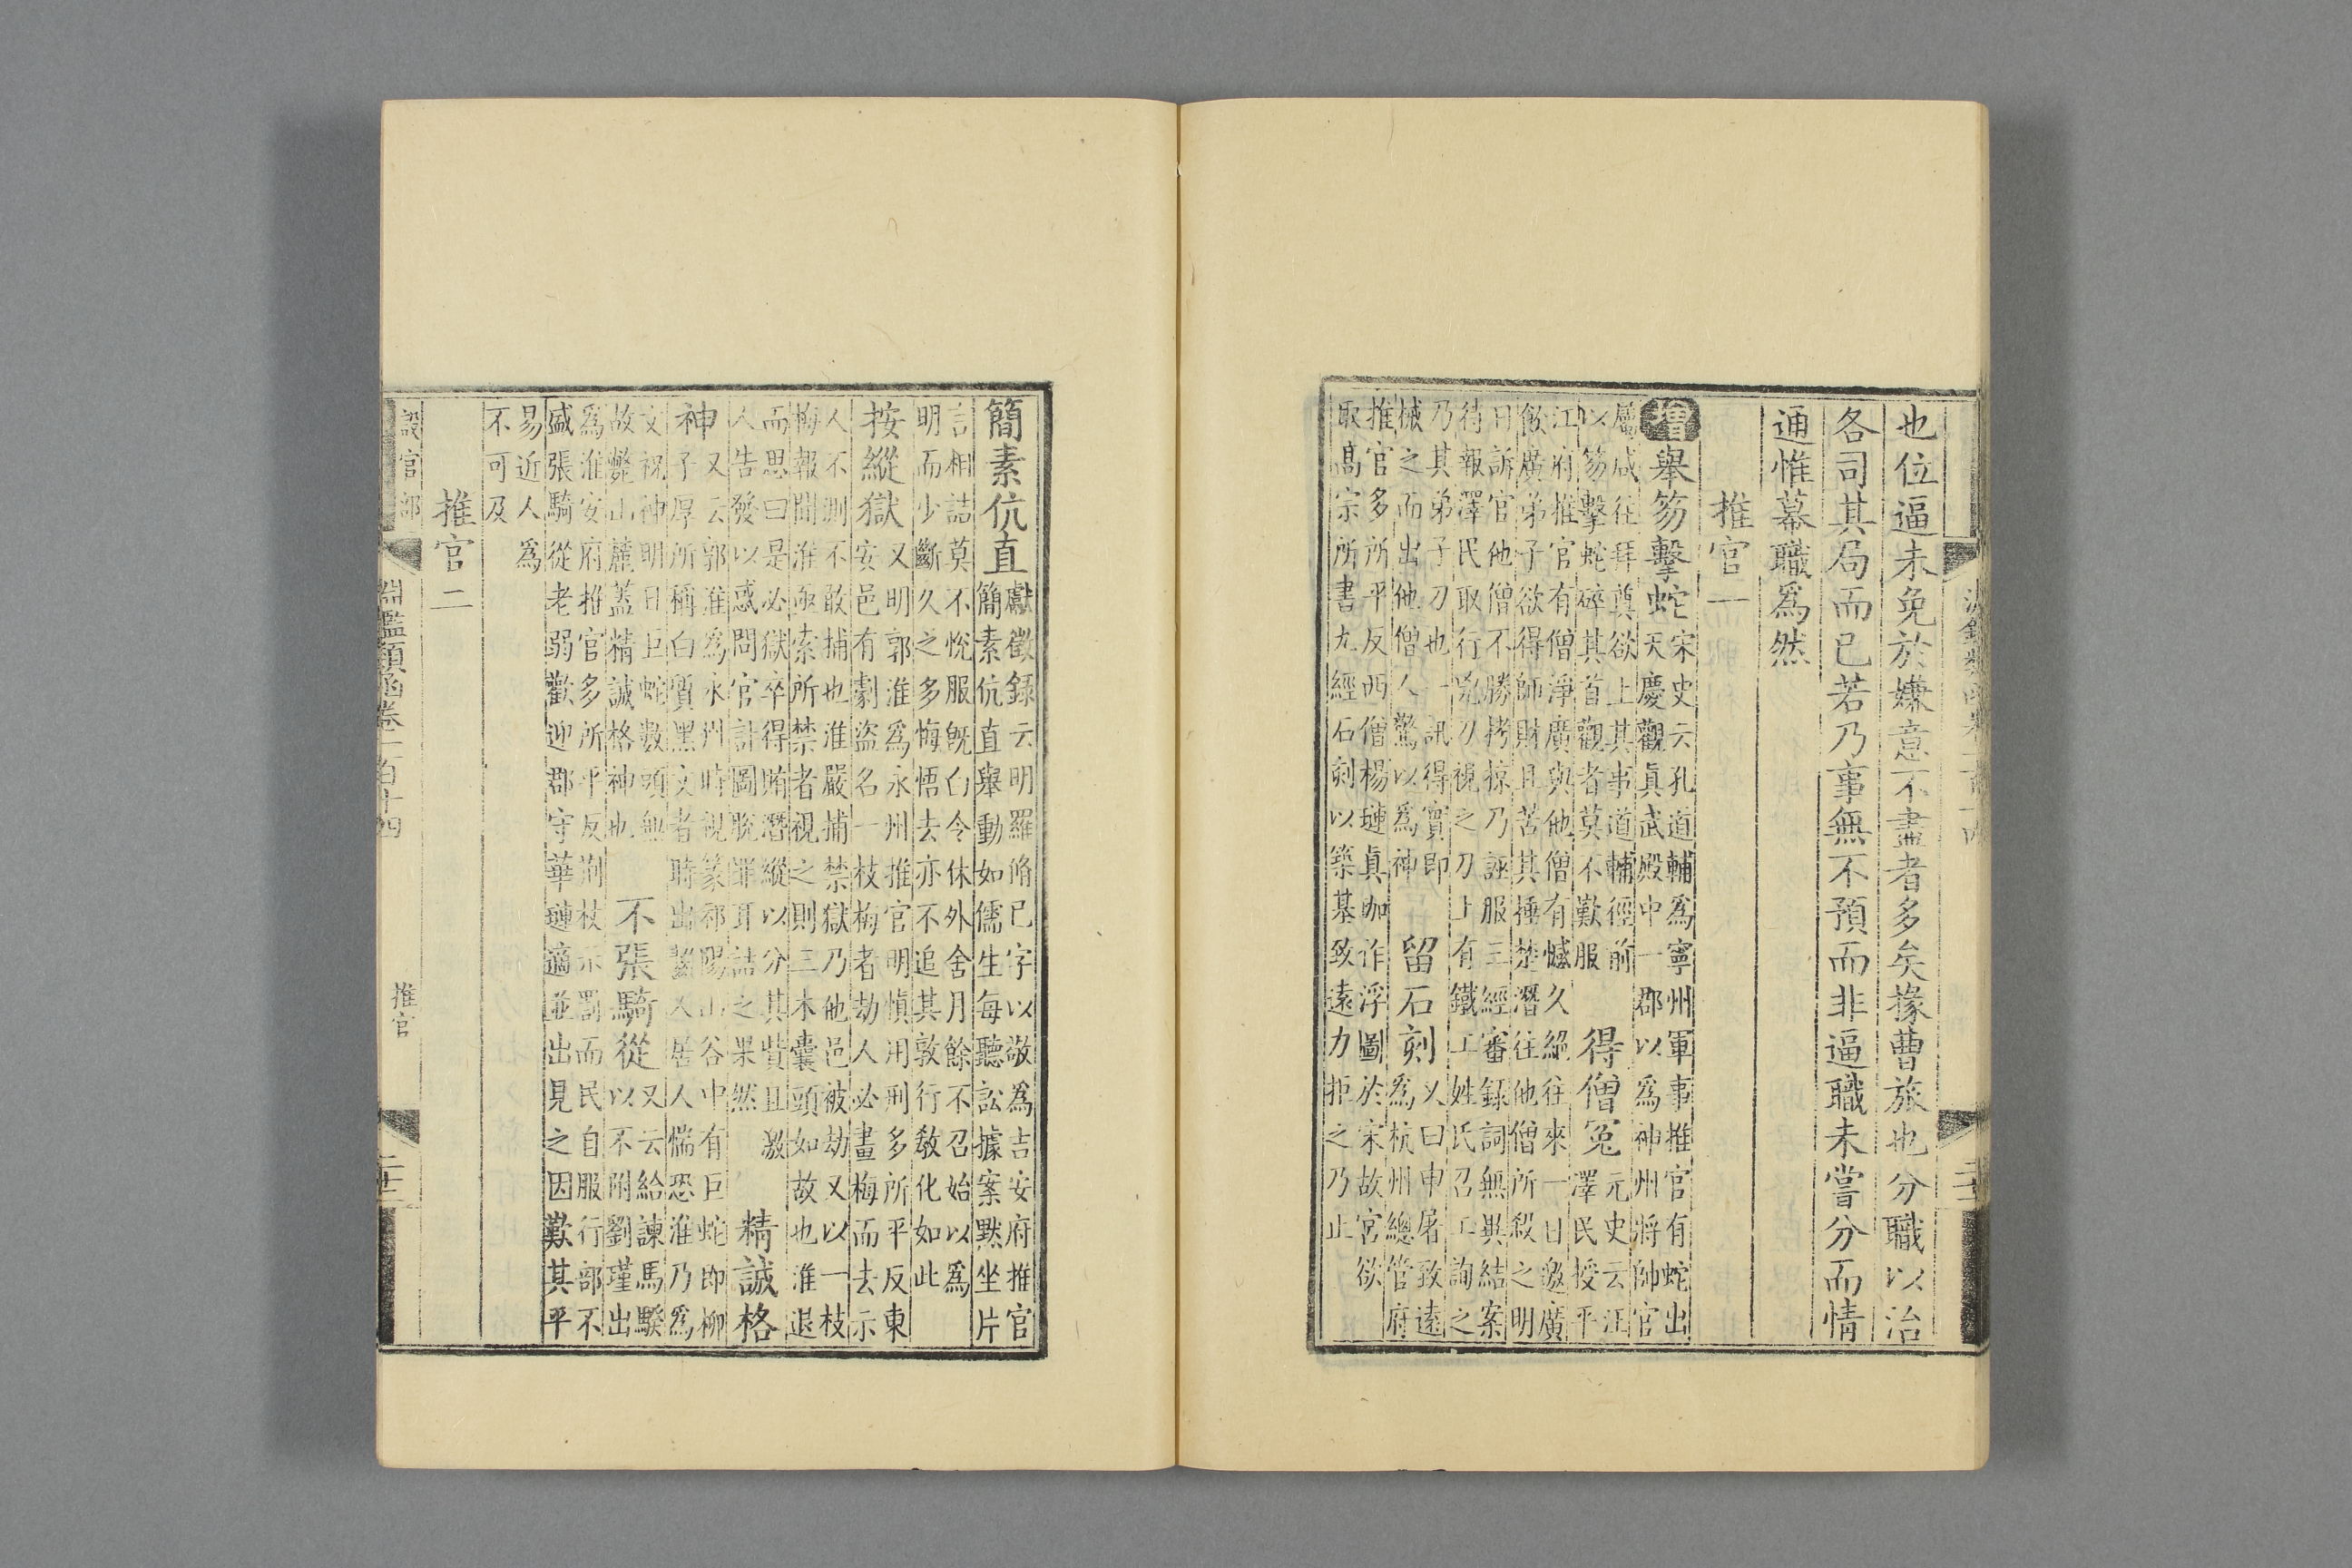 也位逼未免於嫌意不盡者多矣掾曹旅也分職以治
各司其局而已若乃事無不預而非逼職未嘗分而情
通惟幕職爲然
推官一
增舉笏擊蛇
宋史云孔道輔爲寧州軍事推官有蛇出
天慶觀眞武殿中一郡以爲神州將帥官
屬咸往拜奠欲上其事道輔徑前
以笏擊蛇碎其首觀者莫不歎服
得僧冤
元史云汪
澤民授平
江府推官有僧淨廣與他僧有憾久絕往來一日邀廣
飲廣弟子欲得師財且苦其捶楚潛往他僧所殺之明
日訴官他僧不勝拷掠乃誣服三經審録詞無異結案
待報澤民取行兇刀視之刀上有鐵工姓氏召工詢之
乃其弟子刀也一訊得實即
械之而出他僧人驚以爲神
留石刻
又曰申屠致遠
爲杭州總管府
推官多所平反西僧楊璉眞伽作浮圖於宋故宮欲
取高宗所書九經石刻以築基致遠力拒之乃止
簡素伉直
獻徵録云明羅脩已字以敬爲吉安府推官
簡素伉直舉動如儒生每聽訟據案默坐片
言相詰莫不悅服旣白令休外舍月餘不召始以爲
明而少斷久之多悔悟去亦不追其敦行敎化如此
按縱獄
又明郭淮爲永州推官明愼用刑多所平反東
安邑有劇盜名一枝梅者劫人必畫梅而去示
人不測不敢捕也淮嚴捕禁獄乃他邑被劫又以一枝
梅報聞淮亟索所禁者視之則三木囊頭如故也淮退
而思曰是必獄卒得賄潛縱以分其貲且激
人告發以惑問官計圖脫罪耳詰之果然
精誠格
神
又云郭淮爲永州時視篆祁陽山谷中有巨蛇即柳
子厚所稱白質黑文者時出齧人居人惴恐淮乃爲
文祝神明日巨蛇數頭無
故斃山麓蓋精誠格神也
不張騎從
又云給諫馬騤
以不附劉瑾出
爲淮安府推官多所平反荆杖示罰而民自服行部不
盛張騎從老弱歡迎郡守華璉適並出見之因歎其平
易近人爲
不可及
推官二
設官部
淵鑑類函卷一百十四
推官